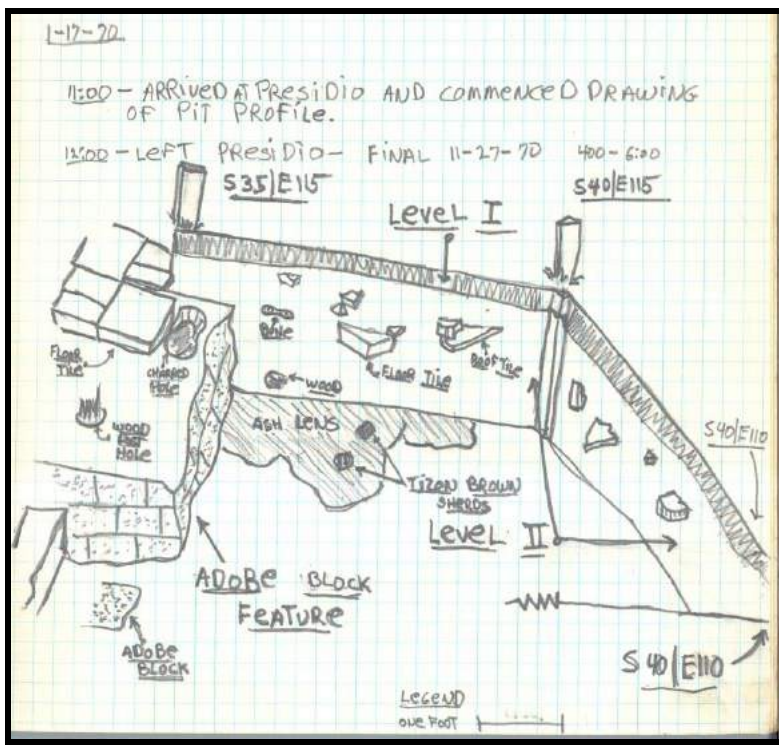 1-17-70
11:00 - ARRIVED AT PRESIDIO AND COMMENCED DRAWING
OF PIT PROFILE.
12:00 - LEFT PRESIDIO - FINAL 11-27-70 400-6:00
S35|E115
S40|E115
LEVEL I
BONE
FLOOR
TILE
CHARRED
HOLE
FLOOR TILE
ROOF TILE
WOOD
WOOD
POST
HOLE
ASH LENS
S40|E110
TIZON BROWN
SHERDS
LEVEL II
ADOBE BLOCK
FEATURE
ADOBE
BLOCK
S40|E110
LEGEND
ONE FOOT